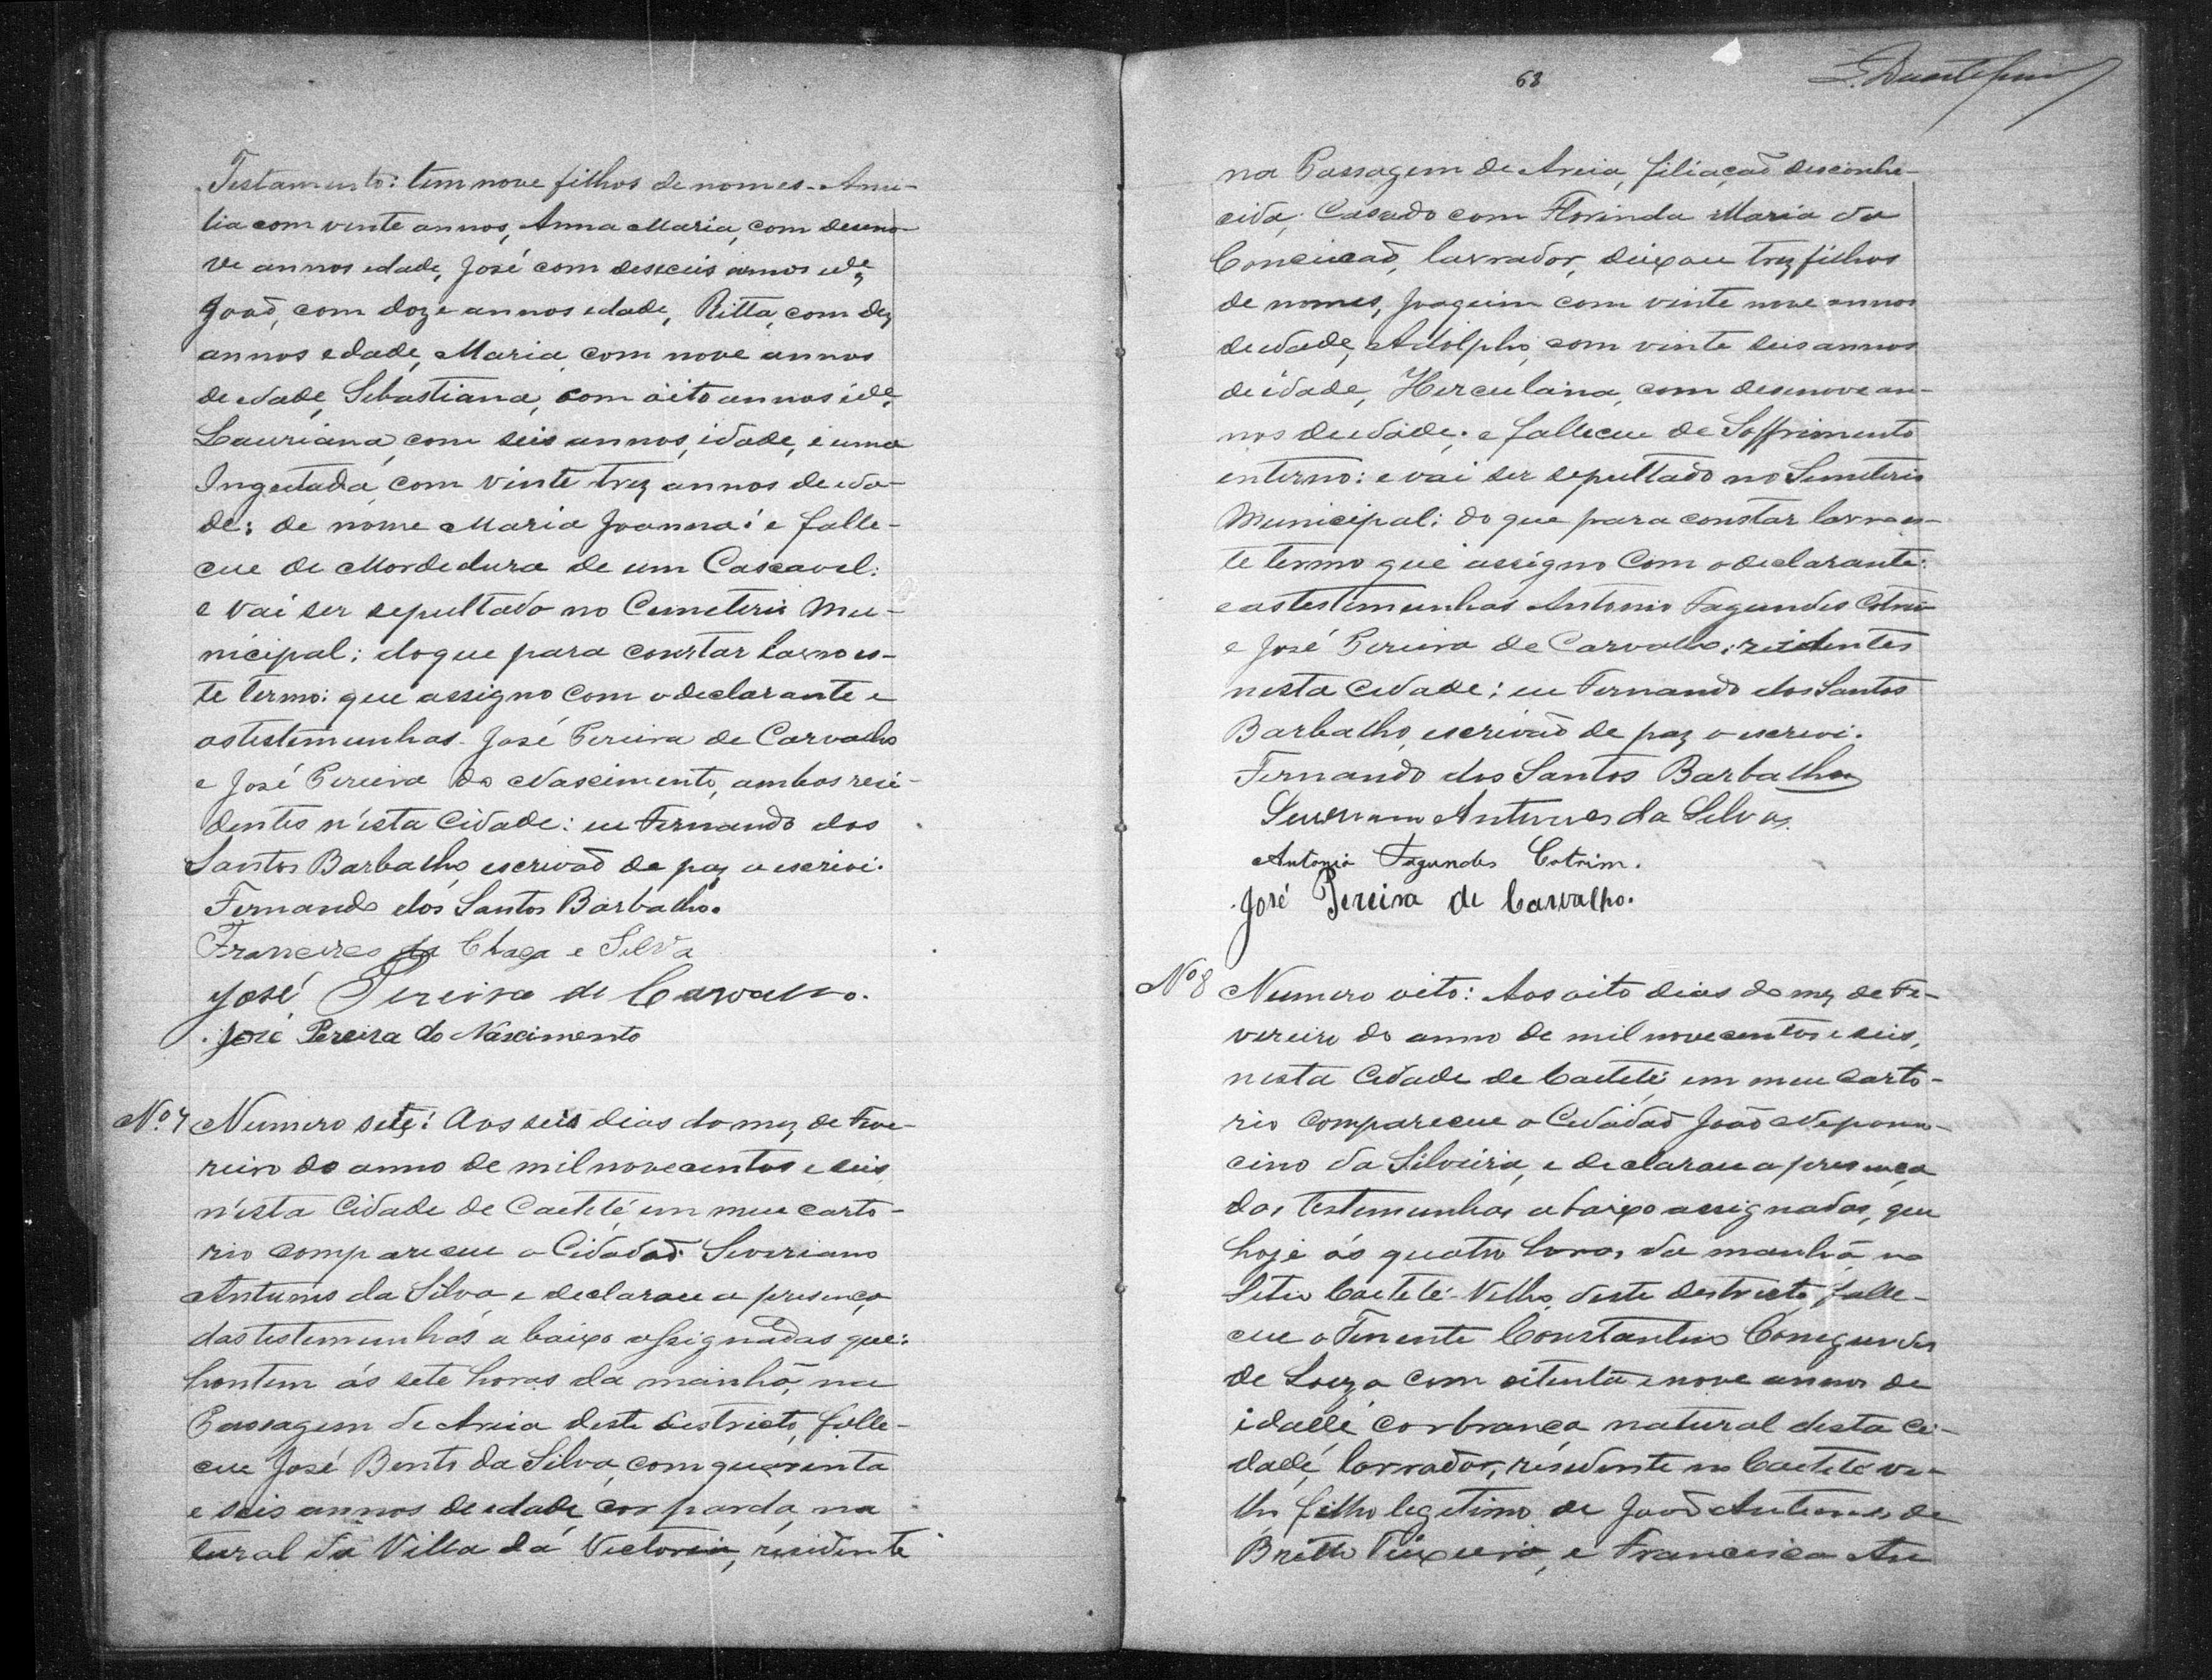 Testamento: tem nove filhos de nomes - Ame-
lia com vinte annos, Anna Maria, com deseno-
ve annos edade, José com desseis annos ide
João, com doze annos edade, Ritta, com dez
annos edade, Maria com nove annos
de edade, Sebastiana, com oito annos ide,
Lauriana, com seis annos, idade, e uma
Ingeitada, com vinte trez annos de eda-
de: de nome Maria Joanna: e falle-
ceu de Mordedura de um Cascavel:
e vai ser sepultado no Cemeterio Mu-
nicipal: do que para constar lavro es-
te termo: que assigno com o declarante e
as testemunhas - José Pereira de Carvalho
e José Pereira do Nascimento, ambos resi-
dentes n'esta Cidade: eu Fernando dos
Santos Barbalho escrivão de paz o escrivi.
Fernando dos Santos Barbalho.
Francisco da Chaga e Silva
José Pereira de Carvalho.
José Pereira do Nascimento
Nº 7 Numero sete: Aos seis dias do mez de Feve-
reiro do anno de mil novecentos e seis
n'esta Cidade de Caeteté em meu carto-
rio compareceu o Cidadão Severiano
Antunes da Silva e declarou a presença
das testemunhas a baixo assignadas que:
hontem ás sete horas da manhã, na
Passagem de Areia deste destricto, falle-
ceu José Bento da Silva, com quarenta
e seis annos de edade, cor parda, na
tural da Villa da Victoria, residente
68
na Passagem de Areia, filiação desconhe-
cida, Casado com Florinda Maria da
Conceicão, lavrador, deixou trez filhos
de nomes, Joaquim com vinte nove annos
de edade, Adolpho, com vinte seis annos
de idade, Herculana, com desenove an-
nos de edade: e falleceu de Soffrimento
interno: e vai ser sepultado no Semeterio
Municipal: do que para constar lavro es-
te termo que assigno Com o declarante:
e as testemunhas Antonio Fagundes Cotrim
e José Pereira de Carvalho, residentes
nesta Cidade: eu Fernando dos Santos
Barbalho, escrivão de paz o escrevi.
Fernando dos Santos Barbalho
Severiano Antunes da Silva.
Antonio Fagundes Cotrim.
José Pereira de Carvalho.
Nº 8 Numero oito: Aos oito dias do mez de Fe-
vereiro do anno de mil novecentos e seis,
nesta Cidade de Caeteté em meu Carto-
rio compareceu o Cidadão João Nepomu-
cino da Silveira, e declarou a presença
das testemunhas a baixo assignadas, que
hoje ás quatro horas da manhã no
Sitio Caeteté-Velho, deste destricto, falle-
ceu o Tenente Constantino Conegundes
de Souza com oitenta e nove annos de
idade, cor branca, natural desta Ci-
dade, lavrador, residente no Caeteté ve-
lho filho legitimo de João Antunes de
Britto Teixeira, e Francisca An